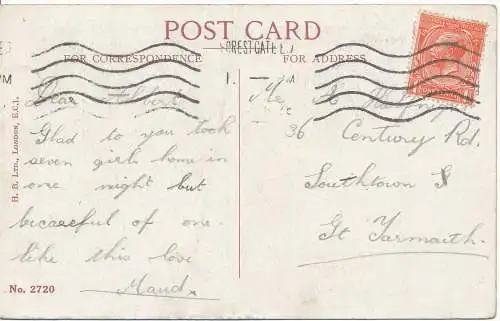 POST CARD
FOREST GATE E.7
FOR CORRESPONDENCE
FOR ADDRESS
Dear Albert
Glad to you took
seven girls home in
one night but
becareful of one
like this love
Maud x
Mr A
36 Century Rd.
Southtown
Gt Yarmouth.
H. B. LTD., LONDON, E.C.1.
No. 2720